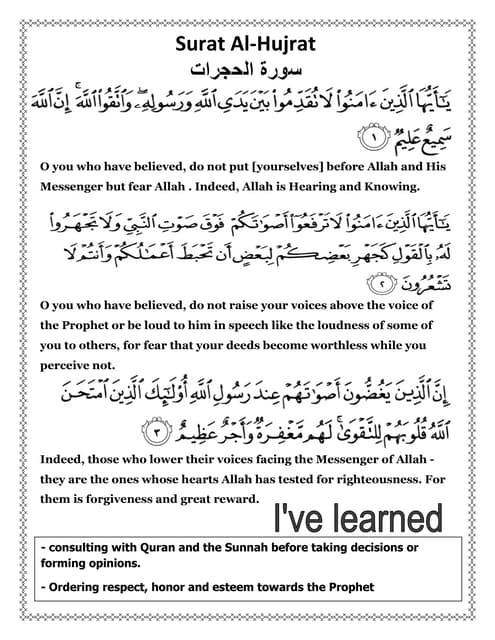 Surat Al-Hujrat
سورة الحجرات
يَٰٓأَيُّهَا ٱلَّذِينَ ءَامَنُوا۟ لَا تُقَدِّمُوا۟ بَيْنَ يَدَىِ ٱللَّهِ وَرَسُولِهِۦ ۖ وَٱتَّقُوا۟ ٱللَّهَ ۚ إِنَّ ٱللَّهَ
سَمِيعٌ عَلِيمٌ ١
O you who have believed, do not put [yourselves] before Allah and His
Messenger but fear Allah . Indeed, Allah is Hearing and Knowing.
يَٰٓأَيُّهَا ٱلَّذِينَ ءَامَنُوا۟ لَا تَرْفَعُوٓا۟ أَصْوَٰتَكُمْ فَوْقَ صَوْتِ ٱلنَّبِىِّ وَلَا تَجْهَرُوا۟
لَهُۥ بِٱلْقَوْلِ كَجَهْرِ بَعْضِكُمْ لِبَعْضٍ أَن تَحْبَطَ أَعْمَٰلُكُمْ وَأَنتُمْ لَا
تَشْعُرُونَ ٢
O you who have believed, do not raise your voices above the voice of
the Prophet or be loud to him in speech like the loudness of some of
you to others, for fear that your deeds become worthless while you
perceive not.
إِنَّ ٱلَّذِينَ يَغُضُّونَ أَصْوَٰتَهُمْ عِندَ رَسُولِ ٱللَّهِ أُو۟لَٰٓئِكَ ٱلَّذِينَ ٱمْتَحَنَ
ٱللَّهُ قُلُوبَهُمْ لِلتَّقْوَىٰ ۚ لَهُم مَّغْفِرَةٌ وَأَجْرٌ عَظِيمٌ ٣
Indeed, those who lower their voices facing the Messenger of Allah -
they are the ones whose hearts Allah has tested for righteousness. For
them is forgiveness and great reward.
I've learned
- consulting with Quran and the Sunnah before taking decisions or
forming opinions.
- Ordering respect, honor and esteem towards the Prophet